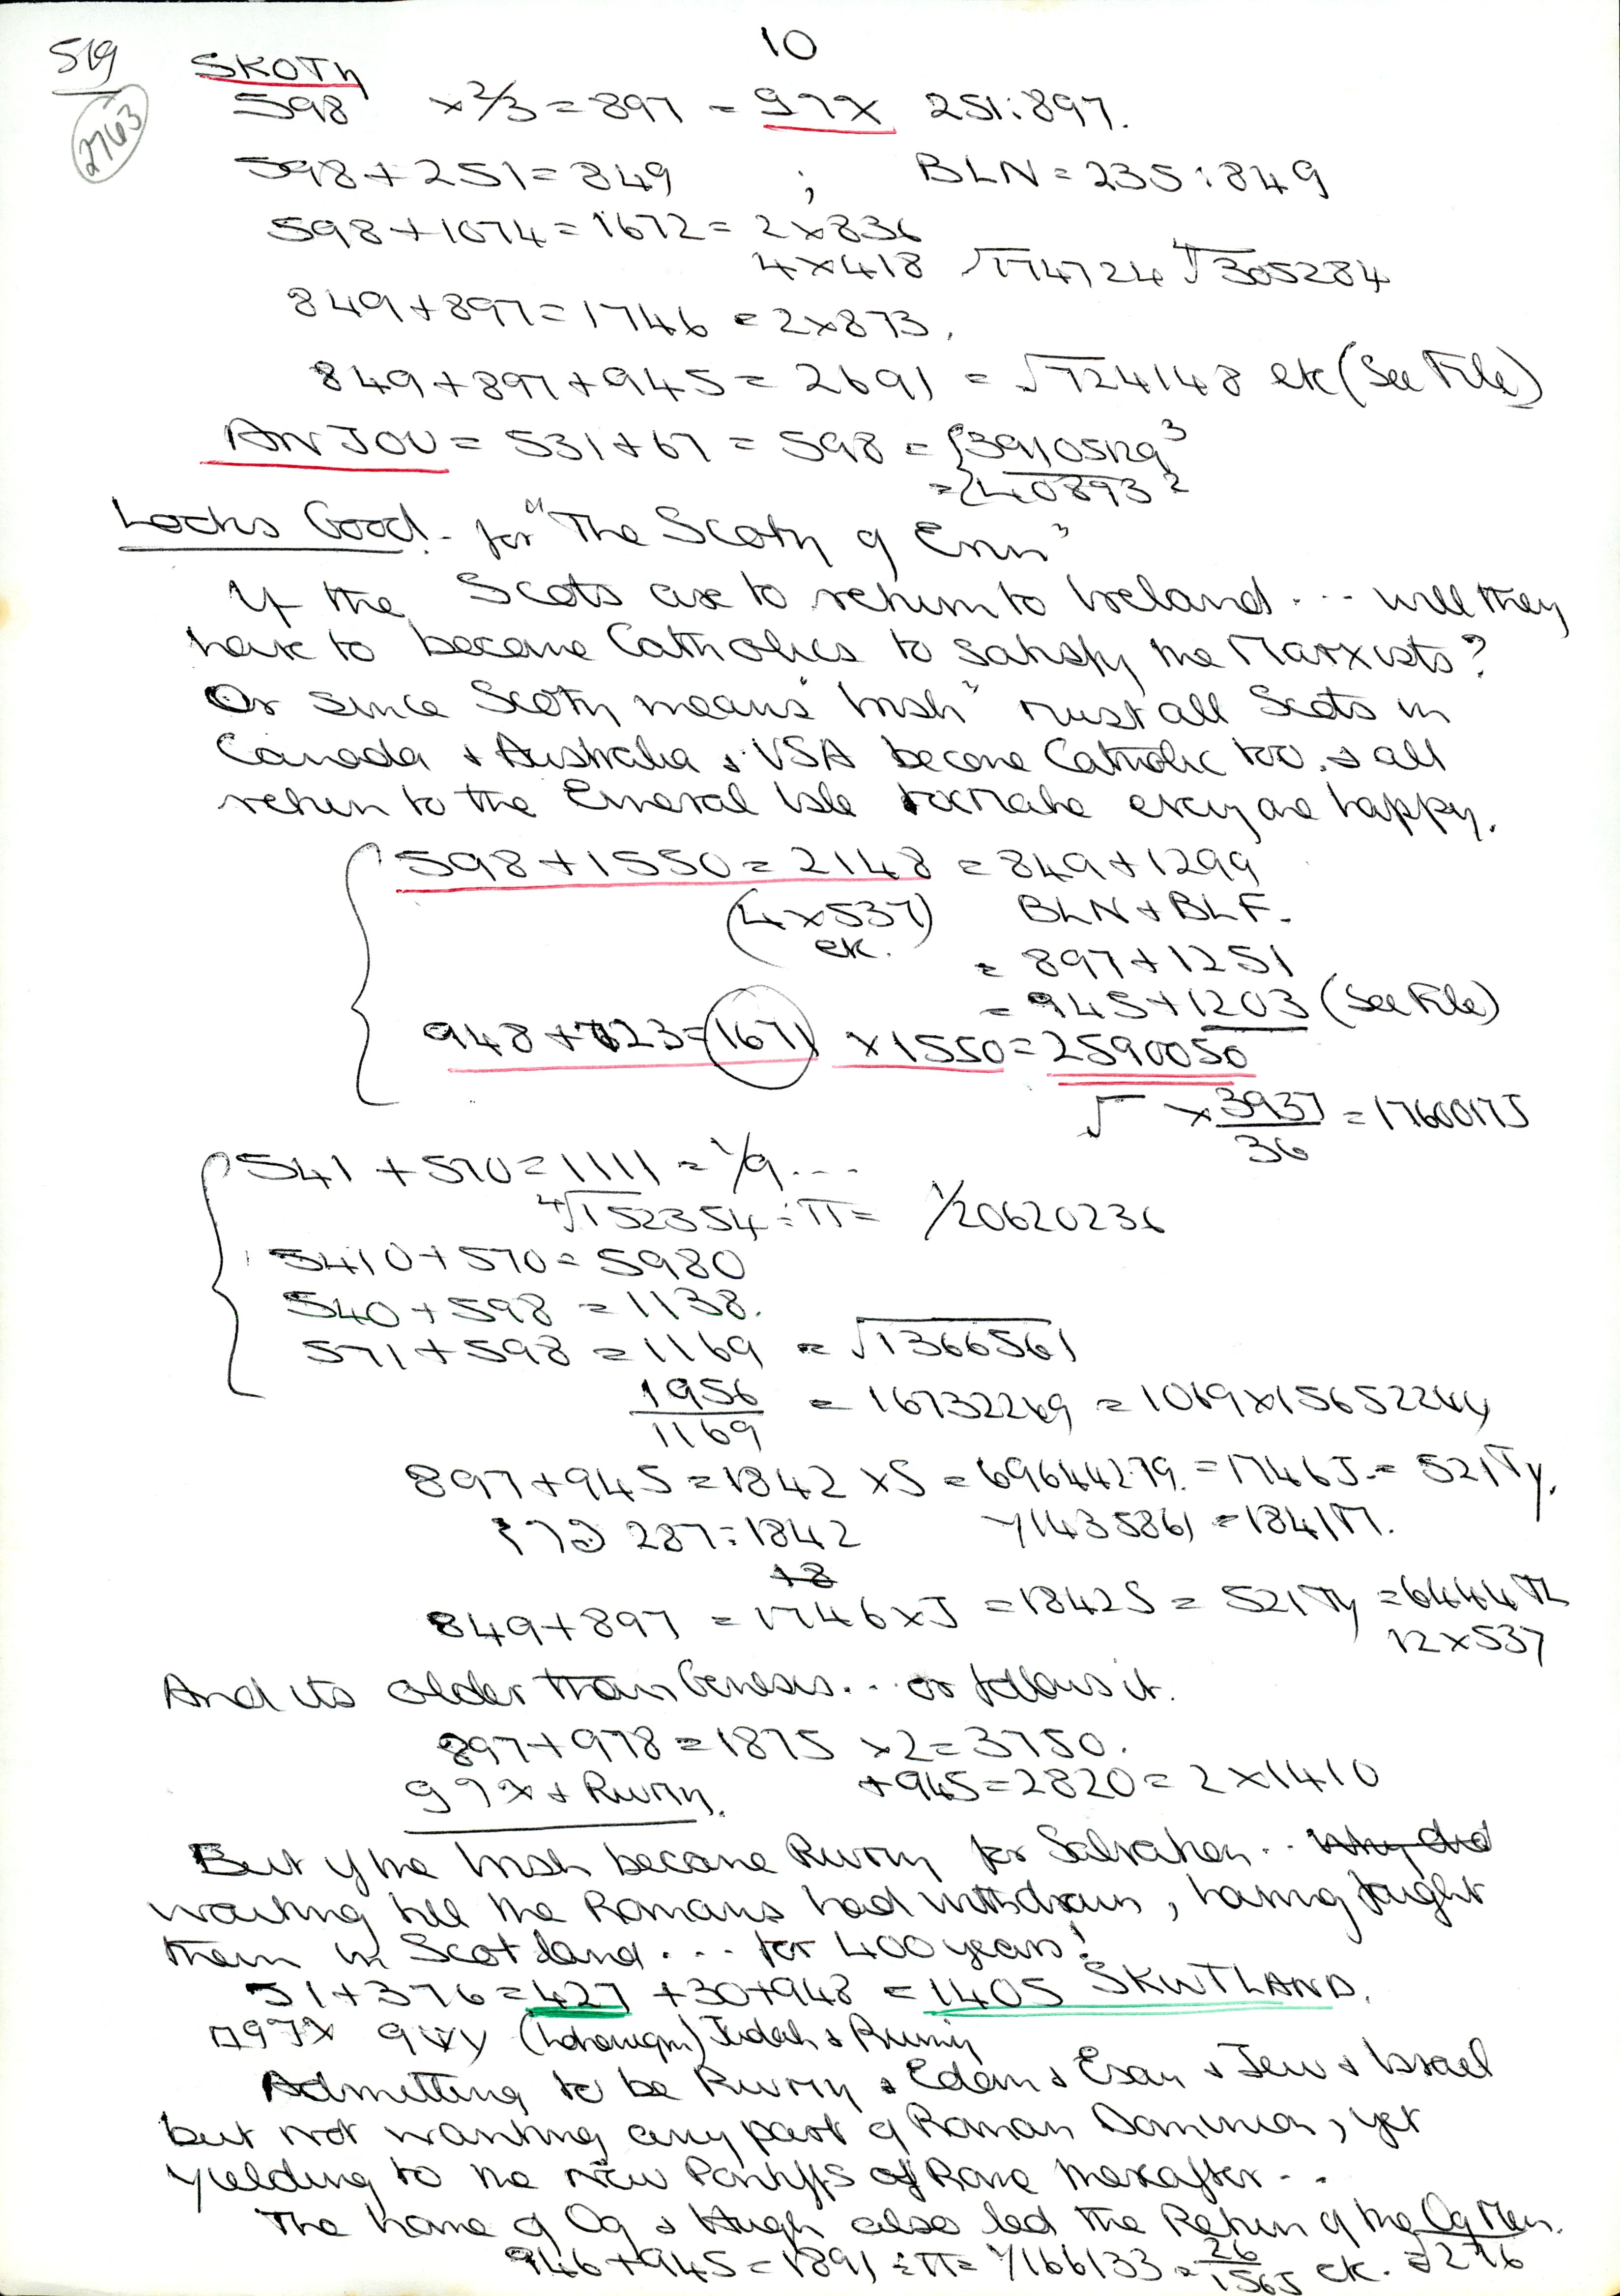 10
519
2763
SKOTH
598 x 2/3 = 897 = 97X 251:897.
598+251=849 ; BLN = 235:849
598+1074=1672= 2x836
4x418 √174724 ∜305284
849+897=1746 = 2x873.
849+897+945= 2691 = √724148 etc (See File)
ANJOU = 531+67 = 598 =
Looks Good! - for "The Scoty of Erin"
If the Scots are to return to Ireland ... will they
have to become Catholics to satisfy the Marxists?
Or since Scoty means "Irish" must all Scots in
Canada & Australia & USA become Catholic too. & all
return to the Emeral Isle to make everyone happy.
598+1550=2148 = 849+1299
(4x537) BLN + BLF.
etc.
= 897+1251
= 945+1203 (See File)
948+723=1671 x1550=2590050
√ x 3937/36 = 17600175
541+570=1111 = 1/9...
∜152354 ÷ π = 1/20620236
5410+570=5980
540+598 =1138.
571+598 =1169 = √1366561
1956/1169 = 16732249 = 1069x1565224y
897+945=1842 x5 = 69644279. =1746J.= 521πy.
287:1842 = 1841π.
849+897 =1746xJ =1842S = 521πy =6444π
12x537
And its older than Genesis... or follows it.
897+978=1875 x2=3750.
97X + Rwmy. +945=2820= 2x1410
But if the Irish become Rwmy for Salvation..
waiting till the Romans had withdrawn, having fought
them in Scotland.... for 400 years!
51+376=427 +30+948 =1405 SKWTLAND.
Judah & Rwmy
Admitting to be Rwmy & Edom & Esau & Jew & Israel
but not wanting any part of Roman Dominion, yet
yielding to the New Pontiffs of Rome thereafter..
The home of Og & Hugh also led the Return of the Og Men.
946+945=1891 ÷π= 1/166133 = 26/1565 etc.